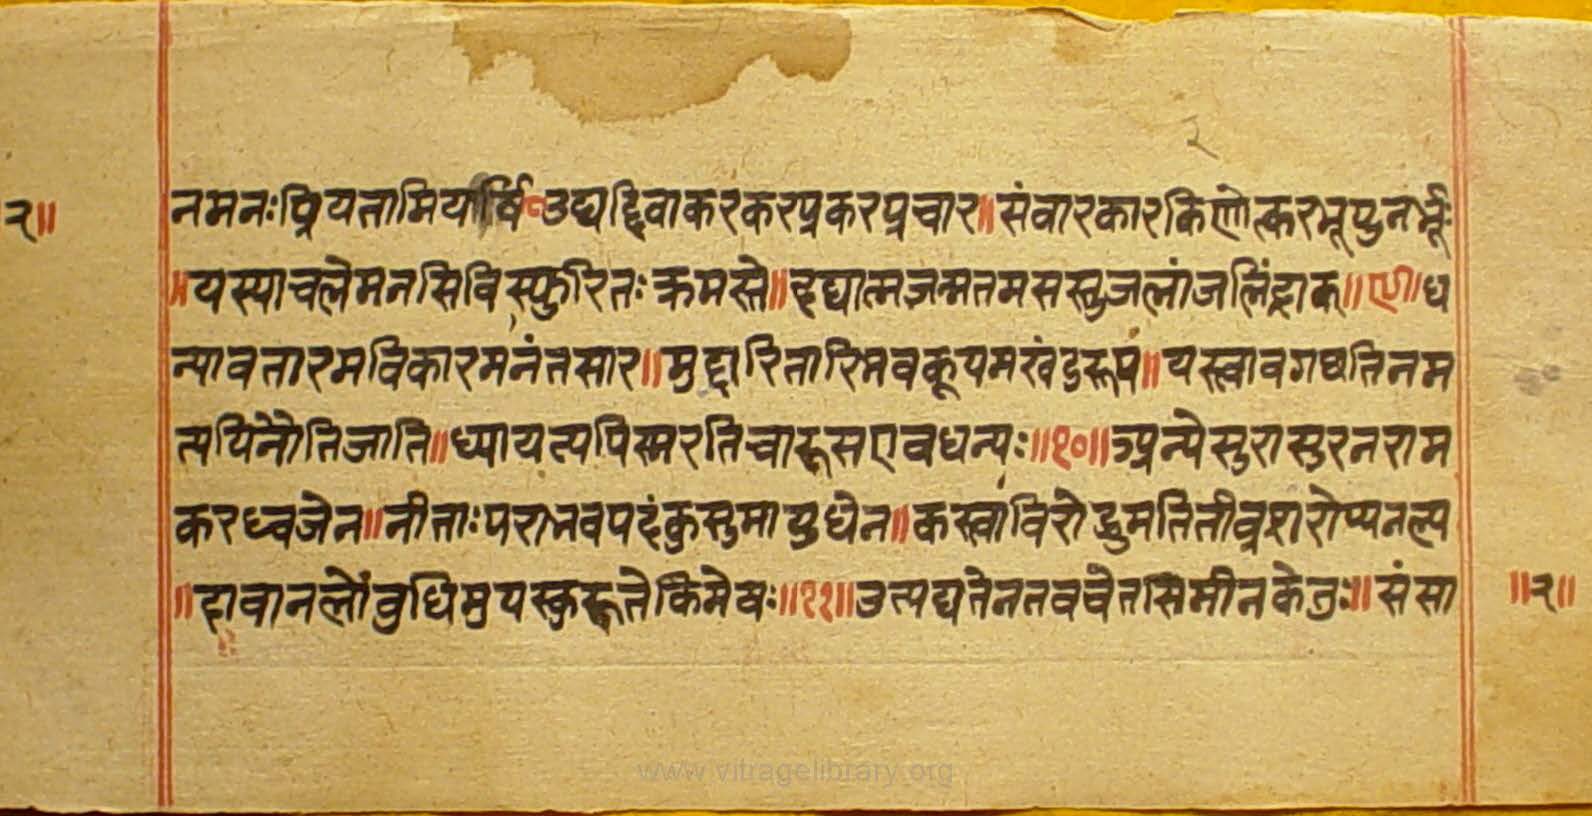 २
२॥ नमनःप्रियतामियर्षि८उद्यद्दिवाकरकरप्रकरप्रचार॥संवारकारकिणोत्करभूपुनर्भूः
॥यस्याचलेमनसिविस्फुरितःक्रमस्ते॥हृद्यात्मजन्मतमसस्तुजलांजलिंद्राक्॥९॥ध
न्यावतारमविकारमनंतसार॥मुद्दारितारिभवकूपमखंडरूपं॥यस्त्वावगछतिनम
त्यपिनौतिजाति॥ध्यायत्यपिस्मरतिचारूसएवधन्यः॥१०॥अन्येसुरासुरनराम
करध्वजेन॥नीताःपराभवपदंकुसुमायुधेन॥कस्त्वाविरोद्धुमतितीव्रशरोप्यनल्प
॥दावानलोंबुधिमुयस्कुरूतेकिमेषः॥११॥उत्पद्यतेनतवचेतसिमीनकेतुः॥संसा ॥२॥
www.vitragelibrary.org